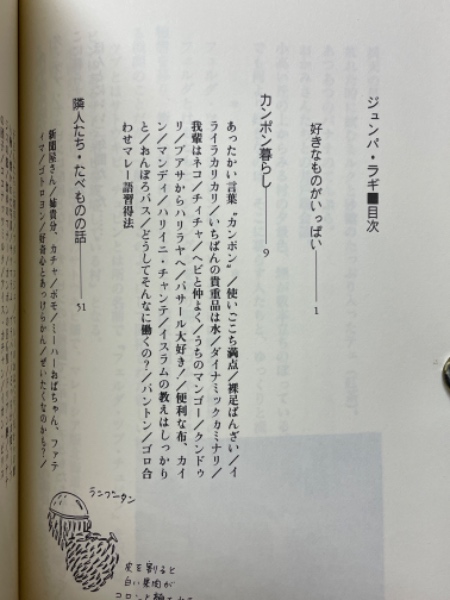 ジュンパ・ラギ■目次
好きなものがいっぱい――1
カンポン暮らし――9
あったかい言葉“カンポン”／使いごこち満点／裸足ばんざい／イ
ライラカリカリ／いちばんの貴重品は水／ダイナミックカミナリ／
我輩はネコ／チィチャ／ヘビと仲よく／うちのマンゴー／クンドゥ
リ／プアサからハリラヤへ／パサール大好き！／便利な布、カイ
ン／マンディ／ハリイニ・チャンテ／イスラムの教えはしっかり
と／おんぼろバス／どうしてそんなに働くの？／パントン／ゴロ合
わせマレー語習得法
隣人たち・たべものの話――51
新聞屋さん／姉貴分、カチャ／ボモ／ミーハーおばちゃん、ファテ
ィマ／ゴトロヨン／好奇心とあっけらかん／ぜいたくなのかも？／
ランブータン
皮を割ると
白い果肉が
コロンと